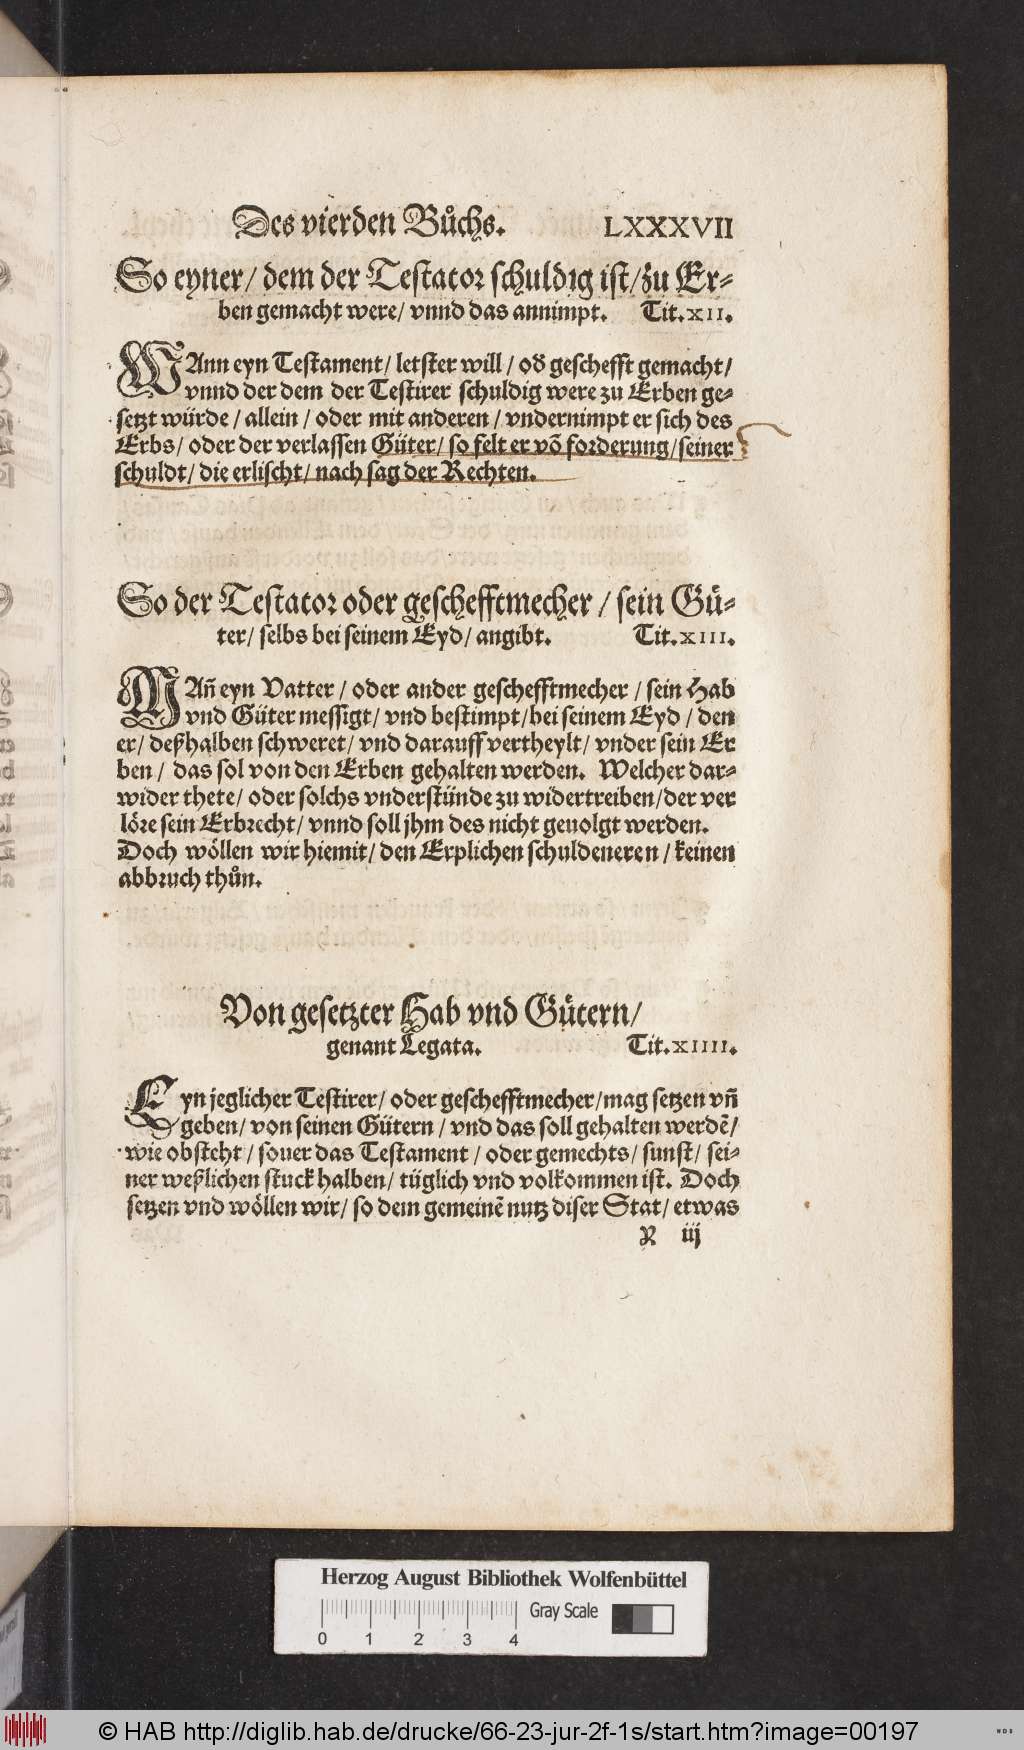 Des vierden Bůchs. LXXXVII
So eyner/ dem der Testator schuldig ist/ zu Er-
ben gemacht were/ vnnd das annimpt. Tit. XII.
WAnn eyn Testament/ letster will/ ođ geschefft gemacht/
vnnd der dem der Testirer schuldig were zu Erben ge-
setzt würde/ allein/ oder mit anderen/ vndernimpt er sich des
Erbs/ oder der verlassen Güter/ so felt er võ forderung/ seiner
schuldt/ die erlischt/ nach sag der Rechten.
So der Testator oder geschefftmecher/ sein Gü-
ter/ selbs bei seinem Eyd/ angibt. Tit. XIII.
WAñ eyn Vatter/ oder ander geschefftmecher/ sein Hab
vnd Güter messigt/ vnd bestimpt/ bei seinem Eyd/ den
er/ deßhalben schweret/ vnd darauff vertheylt/ vnder sein Er
ben/ das sol von den Erben gehalten werden. Welcher dar-
wider thete/ oder solchs vnderstünde zu widertreiben/ der ver
löre sein Erbrecht/ vnnd soll jhm des nicht geuolgt werden.
Doch wöllen wir hiemit/ den Erplichen schuldeneren/ keinen
abbruch thůn.
Von gesetzter Hab vnd Gütern/
genant Legata. Tit. XIIII.
Eyn jeglicher Testirer/ oder geschefftmecher/ mag setzen vñ
geben/ von seinen Gütern/ vnd das soll gehalten werdẽ/
wie obsteht/ souer das Testament/ oder gemechts/ sunst/ sei-
ner weßlichen stuck halben/ tüglich vnd volkommen ist. Doch
setzen vnd wöllen wir/ so dem gemeinẽ nutz diser Stat/ etwas
R iij
Herzog August Bibliothek Wolfenbüttel
Gray Scale
0 1 2 3 4
© HAB http://diglib.hab.de/drucke/66-23-jur-2f-1s/start.htm?image=00197